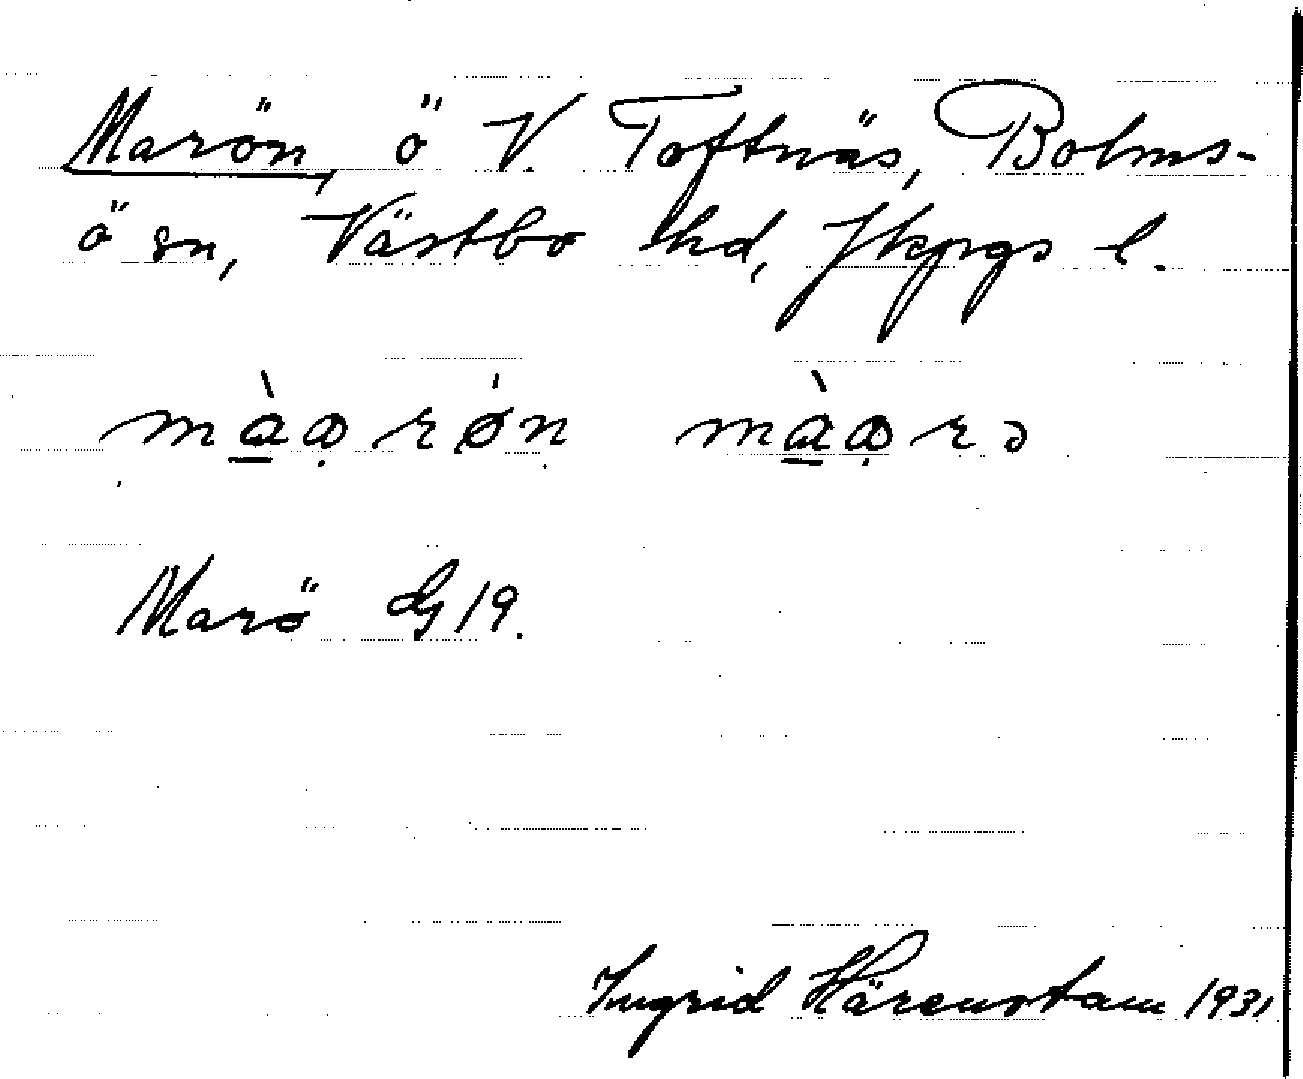 Marön, ö V. Toftnäs, Bolms-
ö sn, Västbo hd, Jkpgs l.
Marö G 19.
Ingrid Härenstam 1931